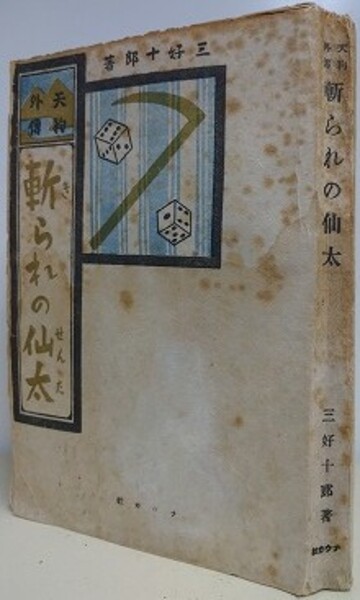 三好十郎著
天狗
外傳
斬られの仙太
き
せんた
ナウカ社
天狗
外傳
斬られの仙太
三好十郎著
ナウカ社